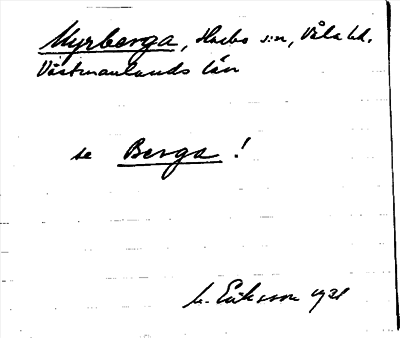 Myrberga, Harbo s:n, Våla hd.
Västmanlands län
se Berga!
M. Eriksson 1921